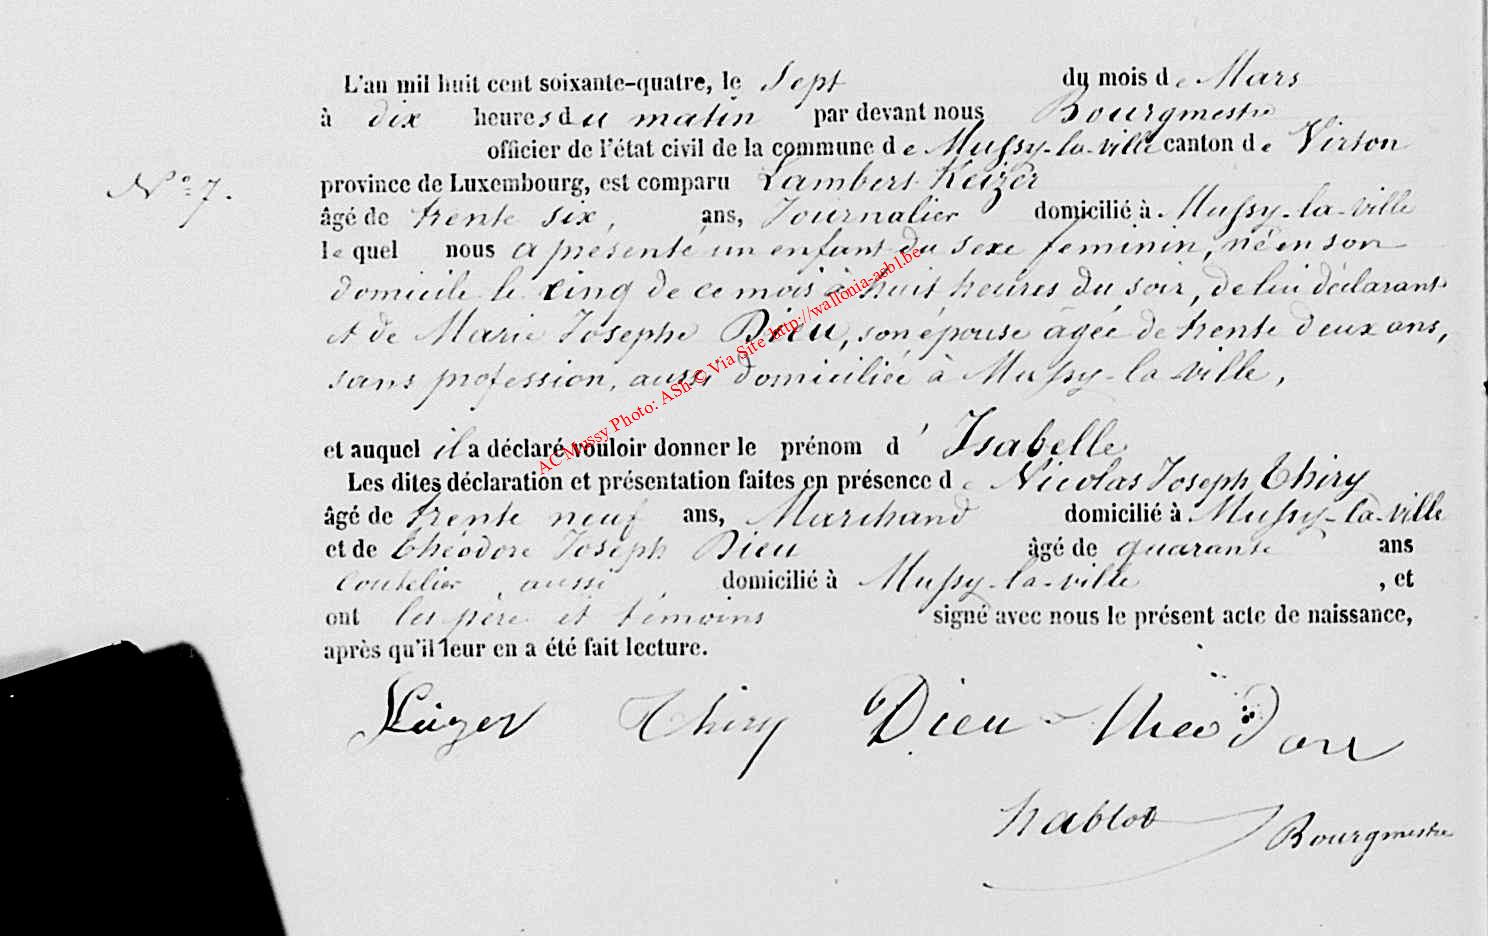 L'an mil huit cent soixante-quatre, le Sept du mois de Mars
à dix heures du matin par devant nous Bourgmestre
officier de l'état civil de la commune de Mussy-la-ville canton de Virton
N° 7.
province de Luxembourg, est comparu Lambert Keizer
âgé de trente six, ans, Journalier domicilié à Mussy-la-ville
lequel nous a présenté un enfant du sexe féminin, né en son
domicile le cinq de ce mois à huit heures du soir, de lui déclarant
et de Marie Josephe Dieu, son épouse âgée de trente deux ans,
sans profession, aussi domiciliée à Mussy-la-ville,
AC Mussy Photo: ASh © Via Site http://wallonia-asbl.be
et auquel il a déclaré vouloir donner le prénom d' Isabelle
Les dites déclaration et présentation faites en présence de Nicolas Joseph Thiry
âgé de trente neuf ans, Marchand domicilié à Mussy-la-ville
et de Théodore Joseph Dieu âgé de quarante ans
Coutelier, aussi domicilié à Mussy-la-ville , et
ont les père et témoins signé avec nous le présent acte de naissance,
après qu'il leur en a été fait lecture.
Keizer Thiry Dieu Theodore
hablot Bourgmestre